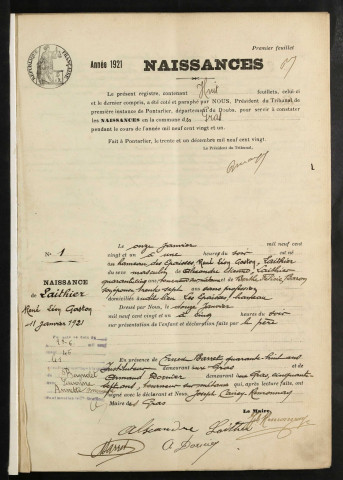 Premier feuillet
Année 1921 NAISSANCES
Le présent registre, contenant Huit feuillets, celui-ci
et le dernier compris, a été coté et paraphé par NOUS, Président du Tribunal de
première instance de Pontarlier, département du Doubs, pour servir à constater
les NAISSANCES en la commune de Gras
pendant le cours de l'année mil neuf cent vingt et un.
Fait à Pontarlier, le trente et un décembre mil neuf cent vingt.
Le Président du Tribunal,
N° 1
NAISSANCE
de Laithier
René Léon Gaston
11 janvier 1921
Le onze janvier mil neuf cent
vingt et un à une heures du soir est né
au hameau des Epaisses, René Léon Gaston Laithier
du sexe masculin de Alexandre Laithier
quarante cinq ans et de Berthe
trente sept ans sans profession
domiciliés audit lieu Les Epaisses, hameau
Dressé par Nous, le douze janvier
mil neuf cent vingt et un à cinq heures du soir
sur présentation de l'enfant et déclaration faite par le père
En présence de Ernest Barret quarante huit ans
instituteur demeurant aux Gras et
Armand Dornier demeurant aux Gras, cinquante
sept ans, tourneur sur métaux qui, après lecture faite, ont
signé avec le déclarant et Nous Joseph Remonnay
Maire des Gras
Le Maire,
Alexandre Laithier
Barret
A Dornier